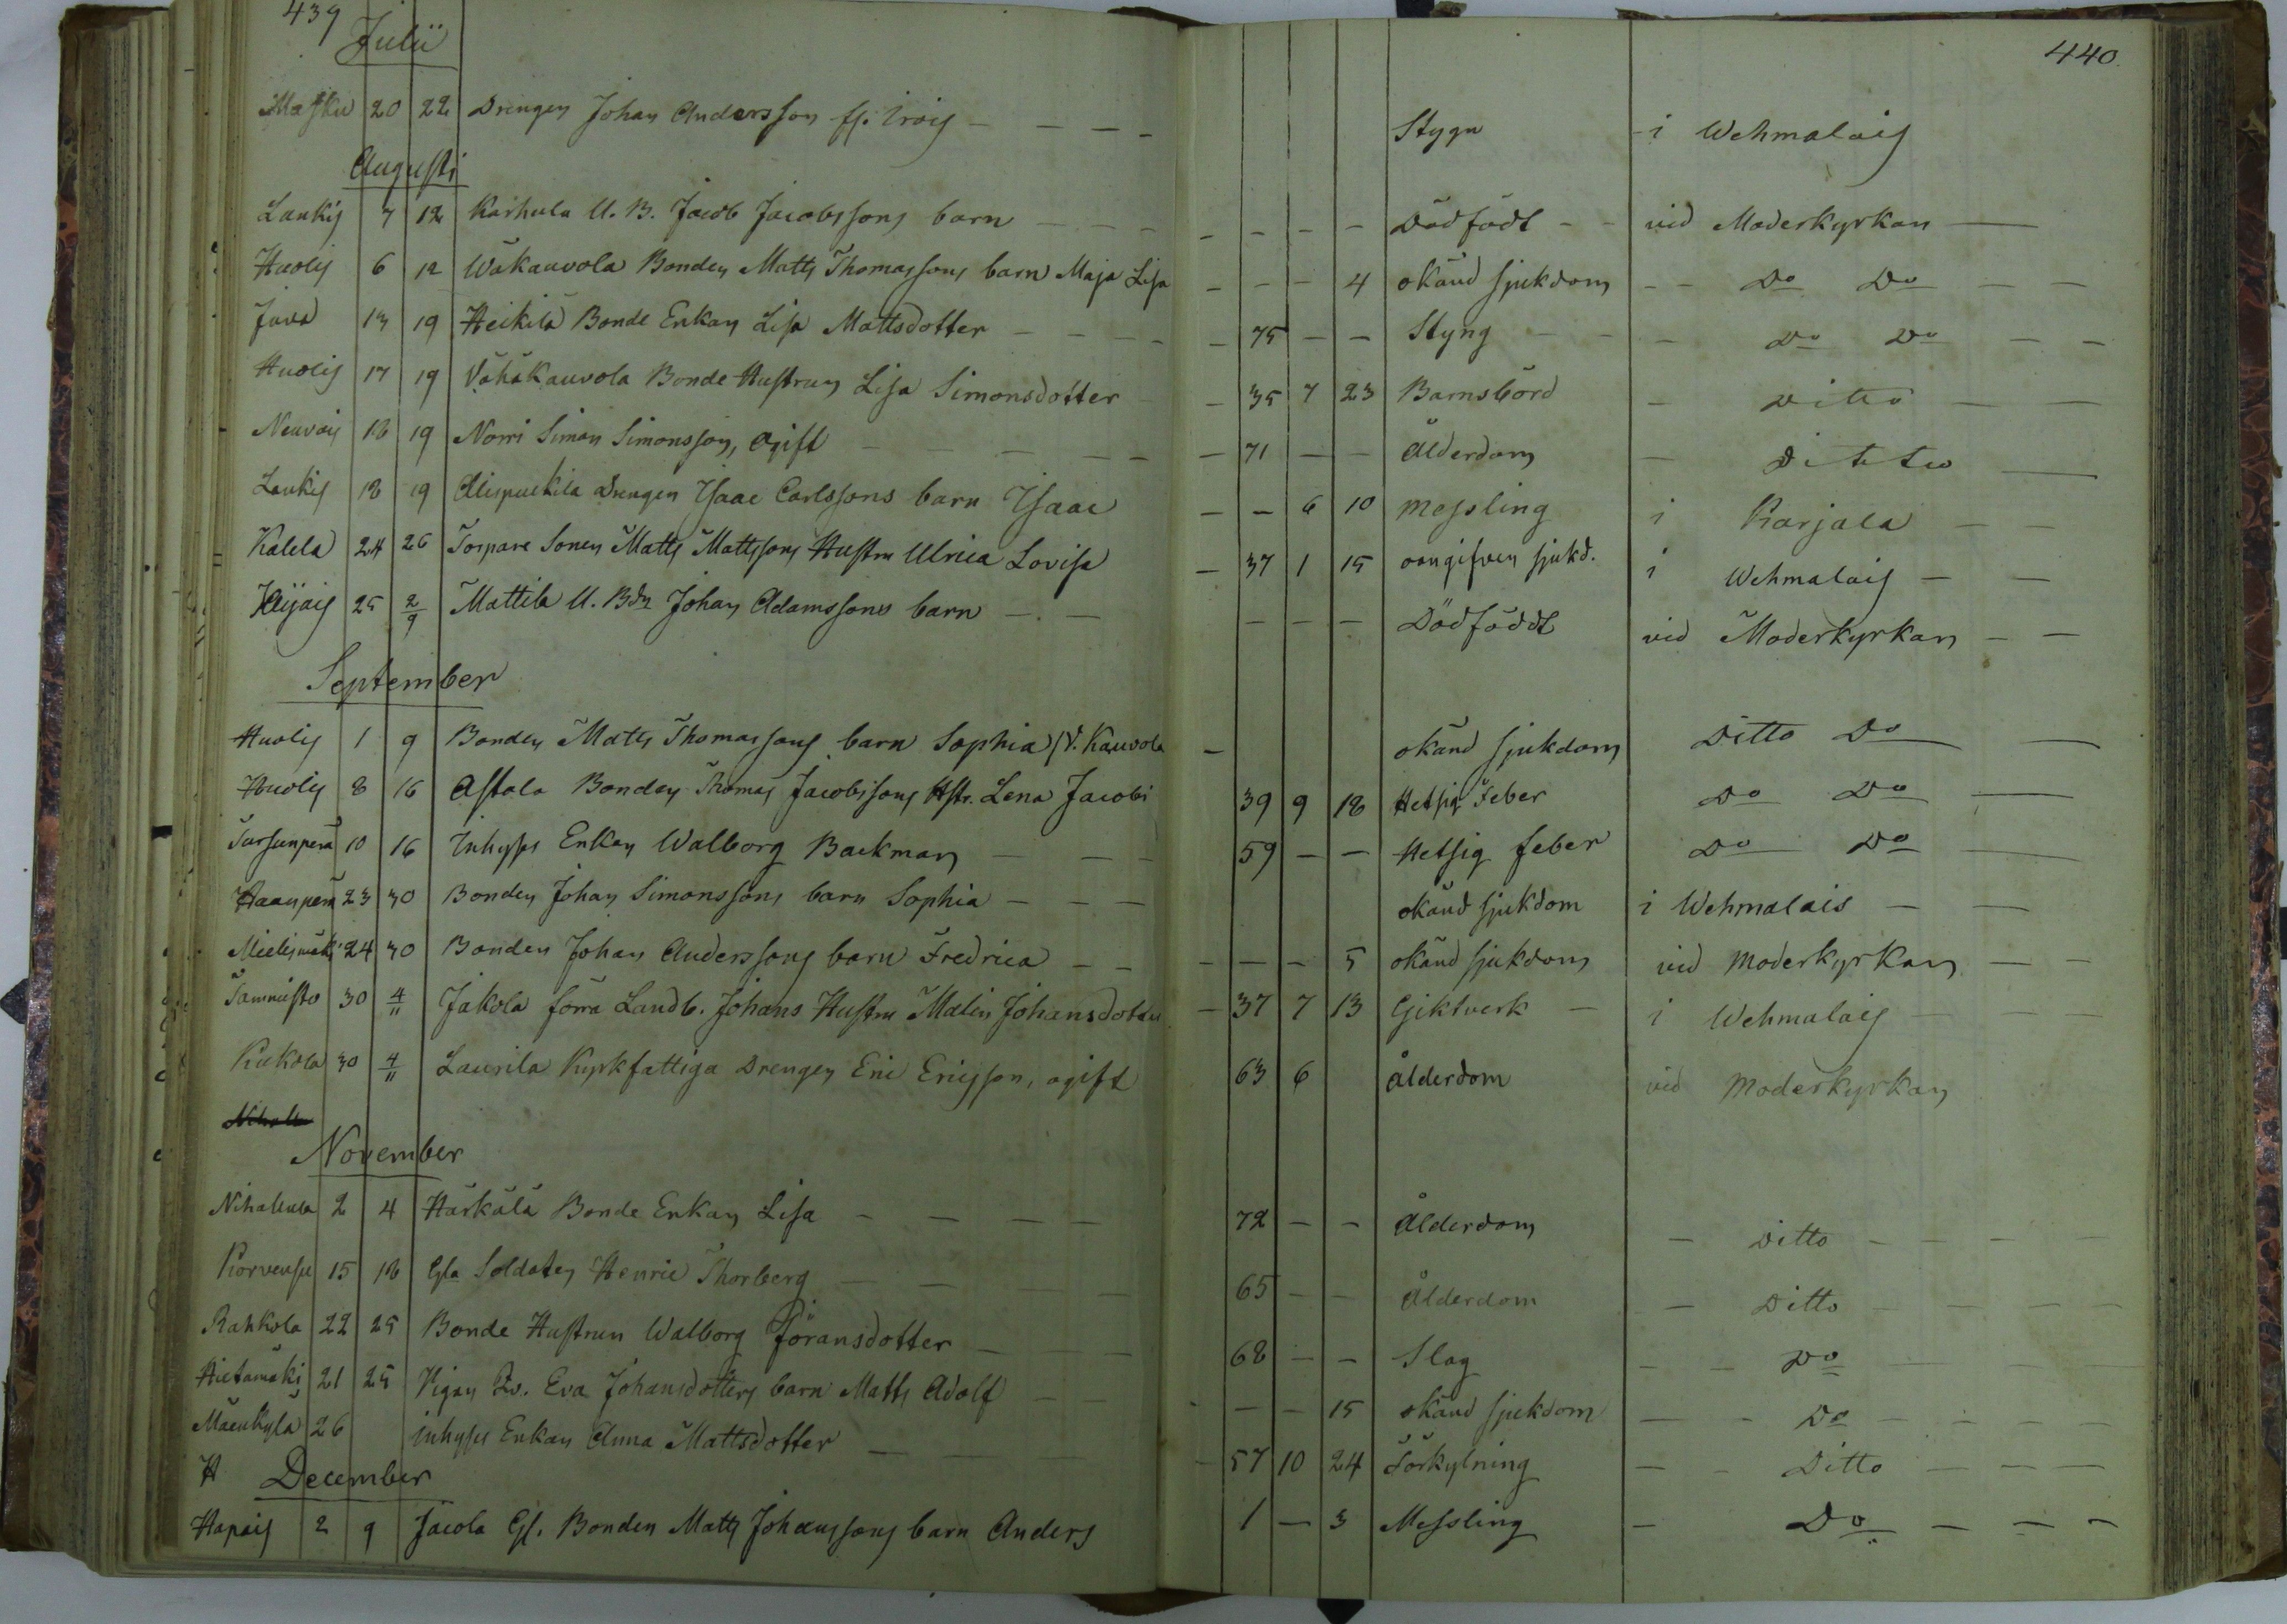 439
440.
Julii
Masku 20 22 Drengen Johan Andersson fr. Irois — — — — Stygn i Wehmalais
Augusti
Laukis 7 12 Karhula U. B. Jacob Jacobssons barn — — — — — — — Dödfödt — — vid Moderkyrkan —
Huolis 6 12 Wäkauvola Bonden Matts Thomassons barn Maja Lisa — — — 4 okänd sjukdom — — Do Do — —
Juva 13 19 Heikilä Bonde Enkan Lisa Mattsdotter — — — — — 75 — — Styng — — — Do Do — —
Huolis 17 19 Vähäkauvola Bonde Hustrun Lisa Simonsdotter — — 35 7 23 Barnsbörd — Ditto — —
Neuvois 18 19 Norri Simon Simonsson, ogift — — — — — — 71 — — Ålderdom — Ditto —
Laukis 18 19 Alispuckila Drengen Isaac Carlssons barn Isaac — — 6 10 Messling i Karjala — —
Kalela 24 26 Torpare Sonen Matts Mattssons Hustru Ulrica Lovisa — 37 1 15 oangifven sjukd. i Wehmalais — —
Heijais 25 2/9 Mattila U. Bdn Johan Adamssons barn — — — — — Dödföddt vid Moderkyrkan — —
September
Huolis 1 9 Bonden Matts Thomassons barn Sophia /V. Kauvola — okänd sjukdom Ditto Do —
Huolis 8 16 Astala Bonden Thomas Jacobssons Hstr. Lena Jacobi 39 9 18 Hetsig Feber Do Do —
Tursunperä 10 16 Inhyses Enkan Walborg Backman — — — 59 — — Hetsig feber Do Do —
Haanperä 23 30 Bonden Johan Simonssons barn Sophia — — — okänd sjukdom i Wehmalais — —
Mielismäki 24 30 Bonden Johan Anderssons barn Fredrica — — — — — 5 okänd sjukdom vid Moderkyrkan — —
Tammisto 30 4/11 Jakola förra Landb. Johans Hustru Malin Johansdotter — 37 7 13 Giktverk — i Wehmalais — — —
Kukola 30 4/11 Laurila Kyrkfattiga Drengen Eric Ericsson, ogift 63 6 ålderdom vid Moderkyrkan
November
Nihattula 2 4 Härkälä Bonde Enkan Lisa — — — — 72 — — Ålderdom — Ditto — — — —
Korvensu 15 18 Gla Soldaten Henric Thorberg — — — — 65 — — Ålderdom — Ditto — — — —
Rahkola 22 25 Bonde Hustrun Walborg Jöransdotter — — — 68 — — Slag — — Do
Hietamäki 21 25 Pigan Qv. Eva Johansdotters barn Matts Adolf — — — — 15 okänd sjukdom — — Do — — — —
Mäenkylä 26 inhyses Enkan Anna Mattsdotter — — — — 57 10 24 Förkylning — — Ditto — — — —
H
December
Hapais 2 9 Jacola Gf. Bonden Matts Johanssons barn Anders 1 — 3 Messling — Do — — —